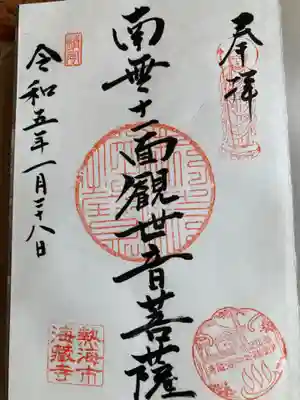 奉拝
南無十一面観世音菩薩
令和五年一月二十八日
熱海市
海蔵寺